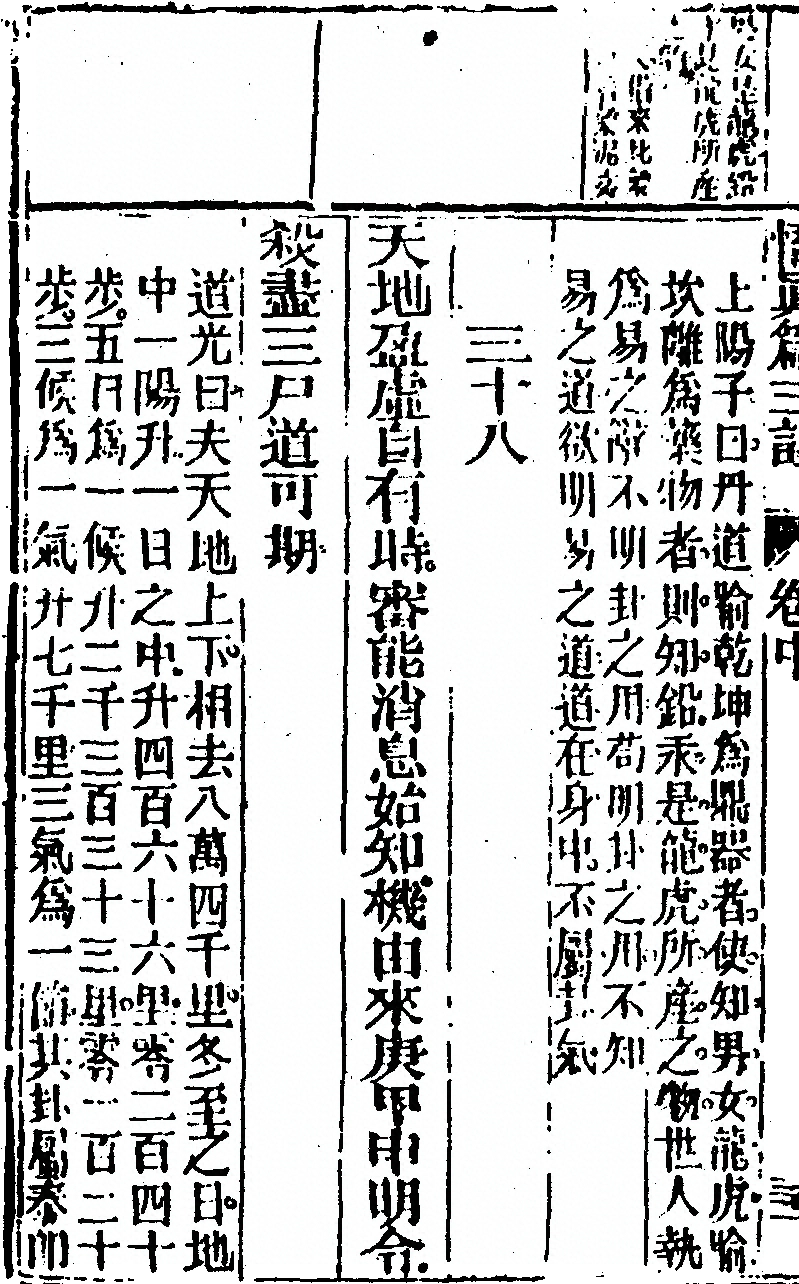 悟真篇三註 卷中
上陽子曰丹道喻乾坤爲鼎器者使知男女龍虎喻
坎離爲藥物者則知鉛汞是龍虎所產之物世人執
爲易之辭不明卦之用苟明卦之用不知
易之道欲明易之道道在身中不屬卦氣
三十八
天地盈虛自有時審能消息始知機由來庚甲申明令
殺盡三尸道可期
道光曰夫天地上下相去八萬四千里冬至之日地
中一陽升一日之中升四百六十六里零二百四十
步五日爲一候升二千三百三十三里零一百二十
步三候爲一氣升七千里三氣爲一節其卦屬泰卽
龍虎鉛
虎所產